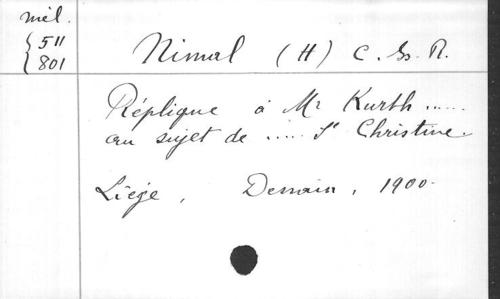 mél.
511
801
Nimal (H) C. Ss. R.
Réplique à Mr Kurth .....
au sujet de ..... Ste Christine.
Liège, Dessain, 1900.